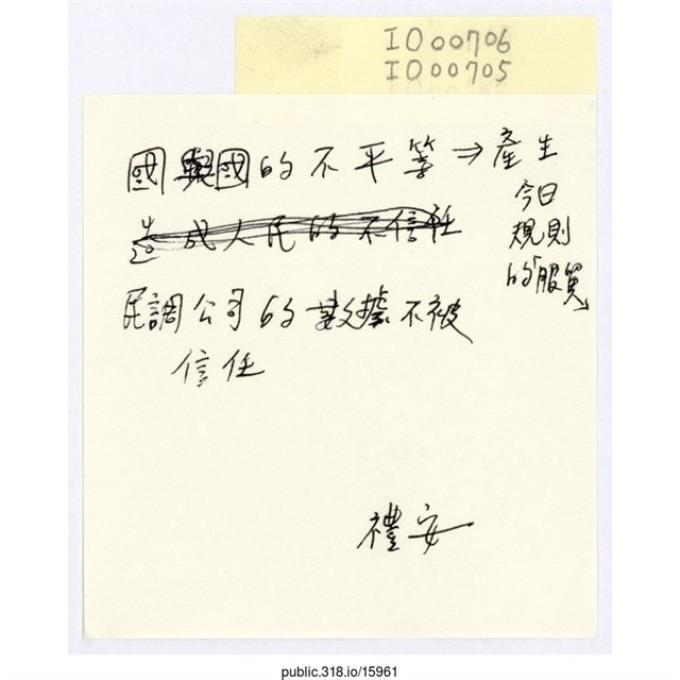 IO00706
IO00705
國與國的不平等⇒產生
今日
規則
的「服貿」
造成人民的不信任
民調公司的數據不被
信任
禮安
public.318.io/15961